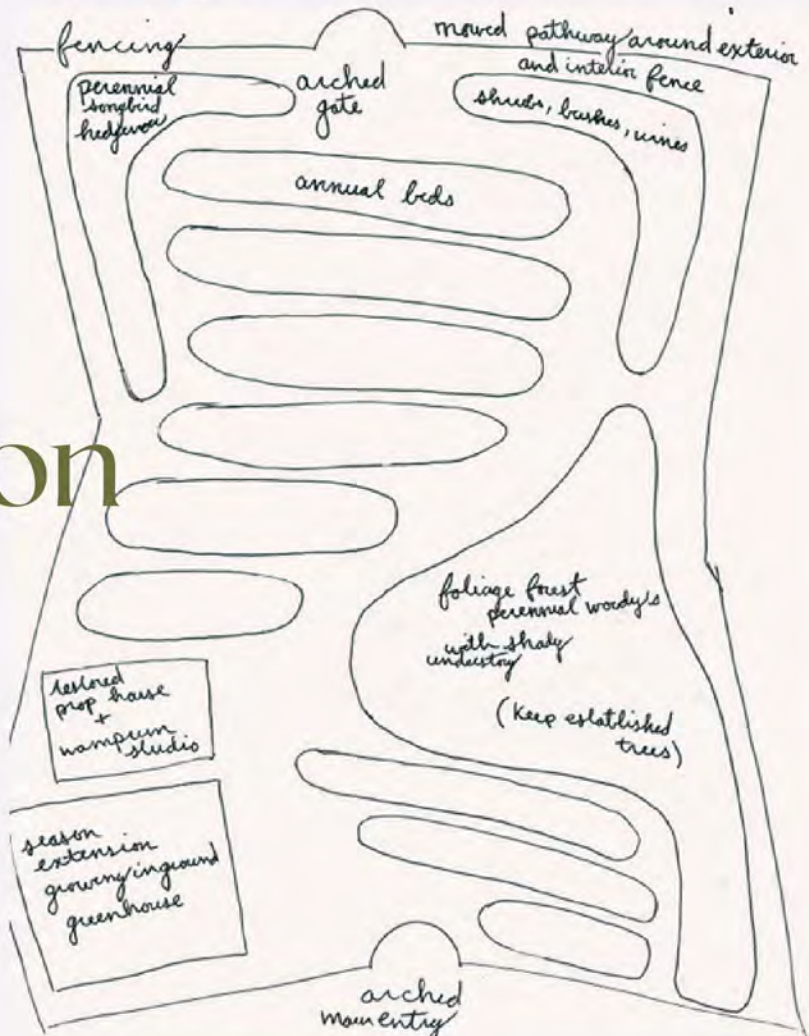 fencing
mowed pathway around exterior
and interior fence
perennial
songbird
hedgerow
arched
gate
shrubs, bushes, vines
annual beds
on
foliage forest
perennial woodys
with shady
understory
(keep established
trees)
restored
prop house
+
wampum
studio
season
extension
growing inground
greenhouse
arched
main entry